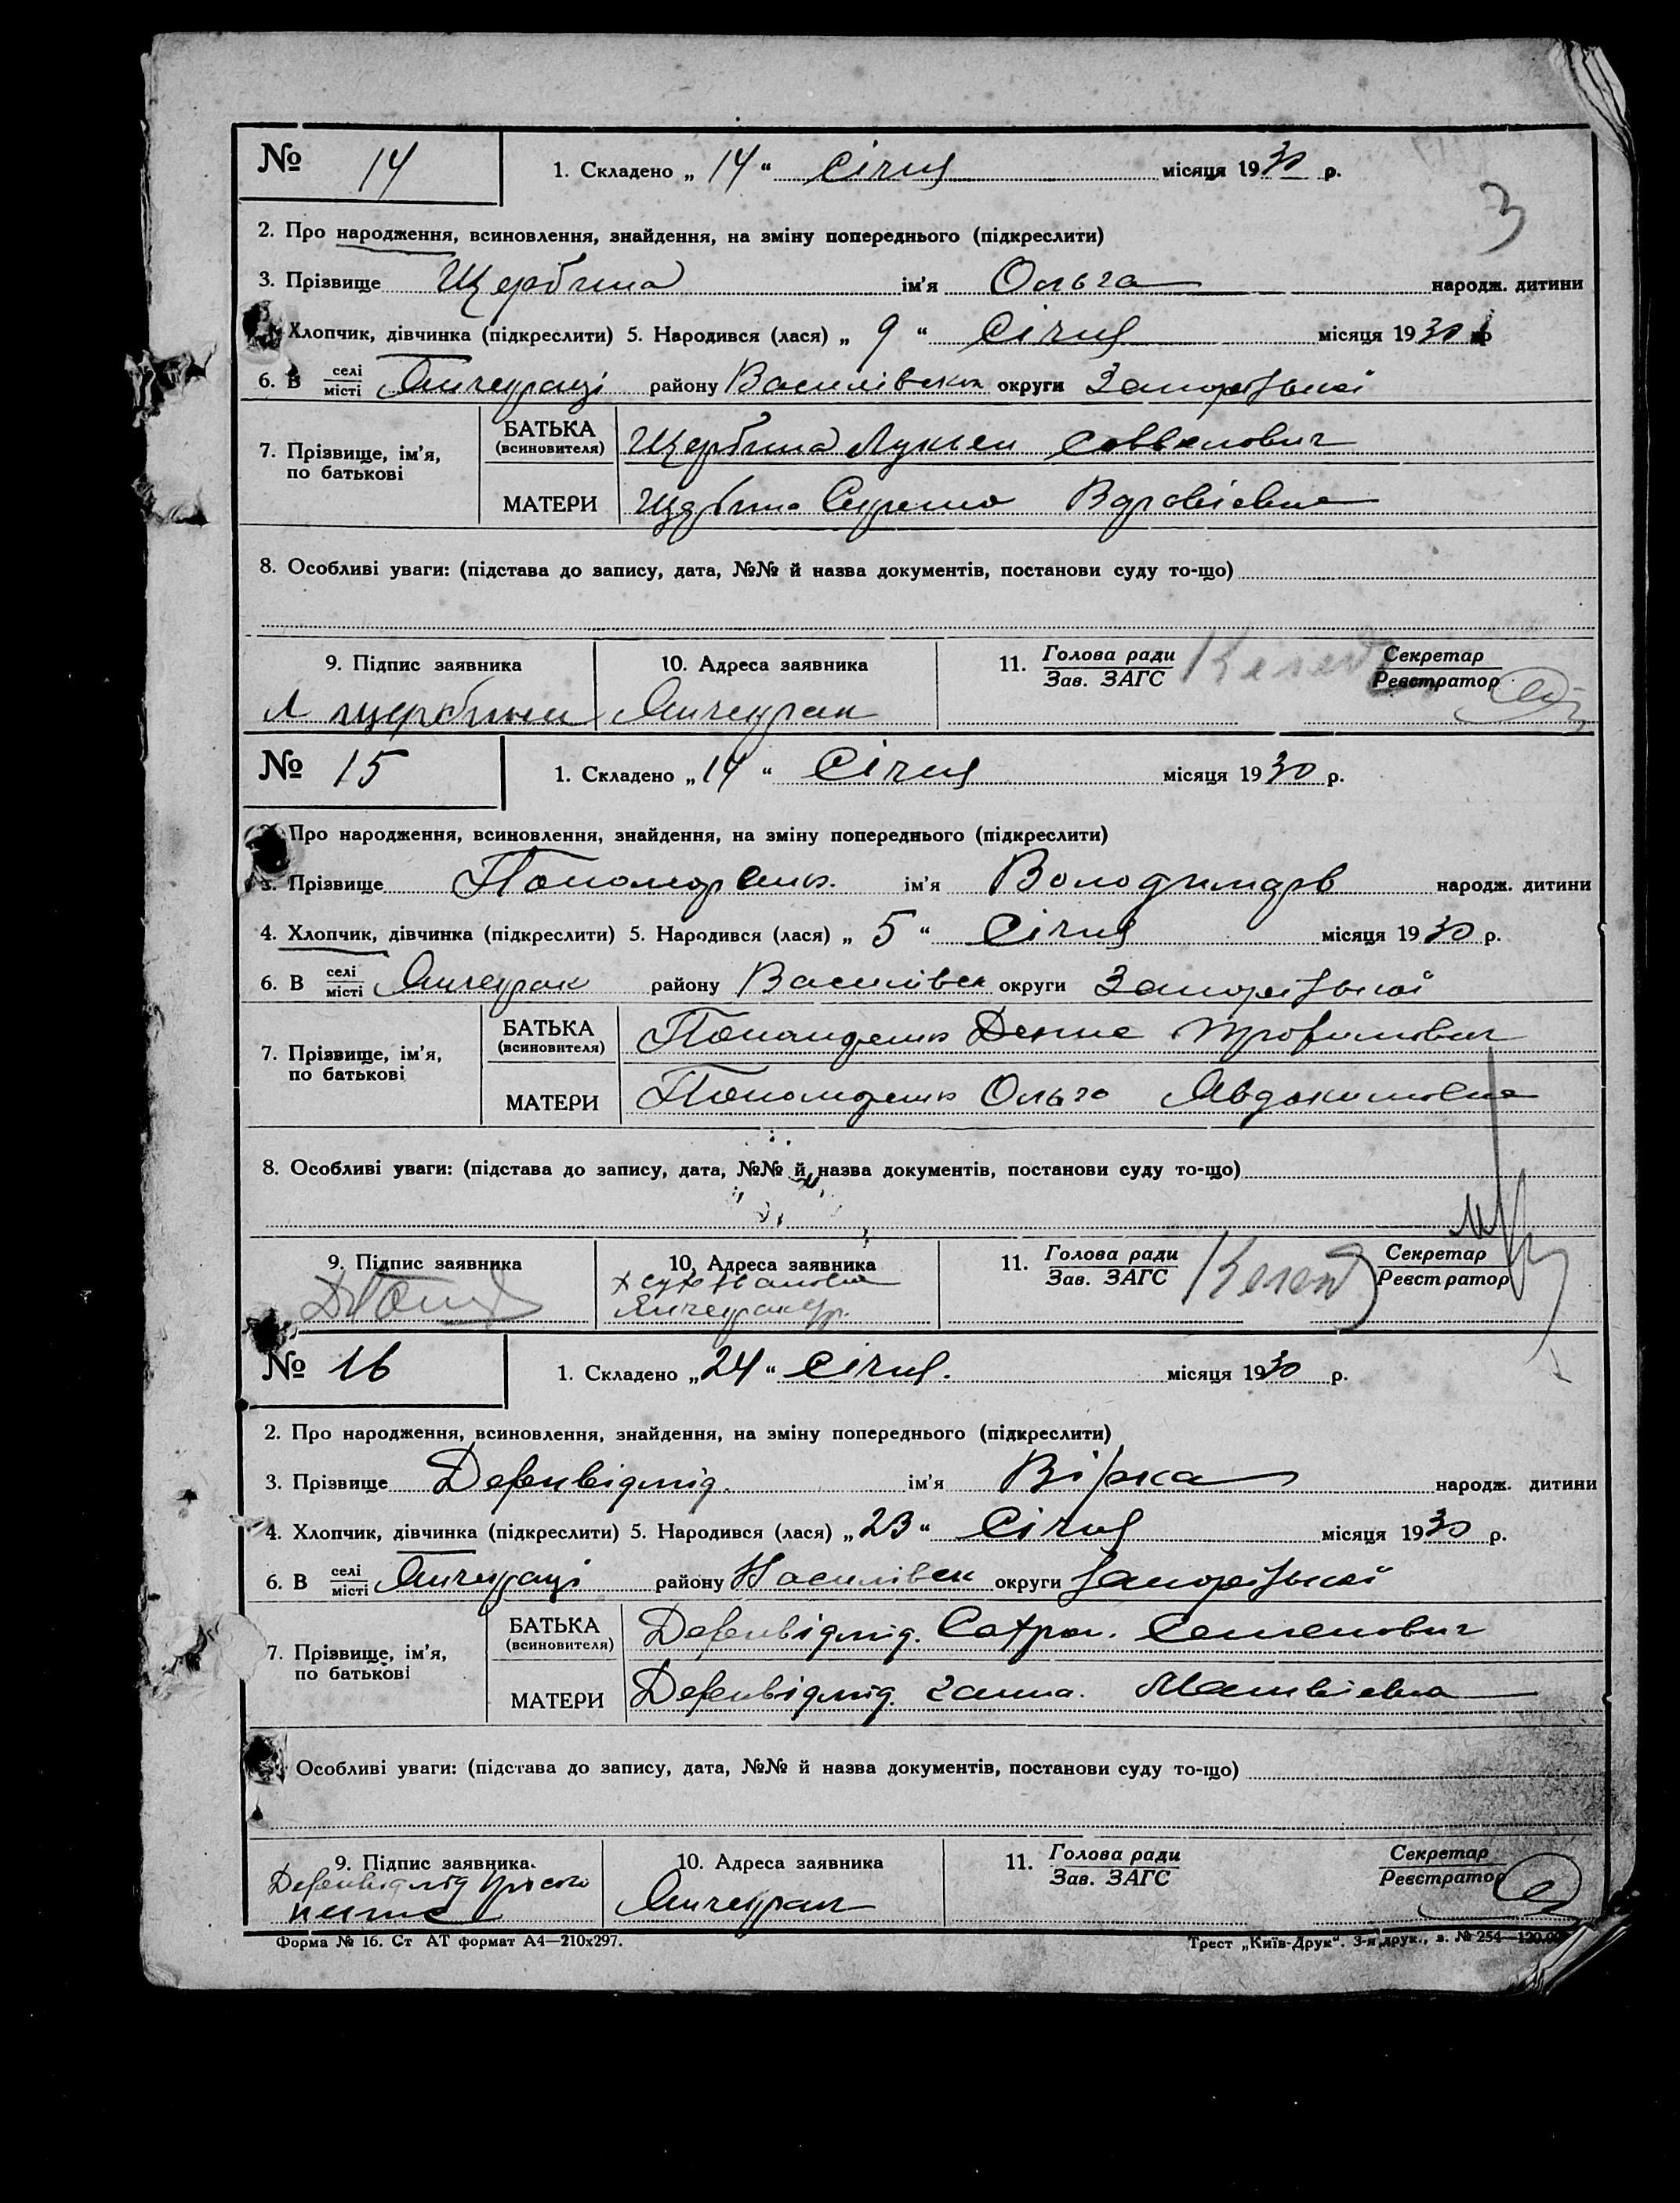 № 14 1. Складено „ 14 “ Січня місяця 1930 р.
3
2. Про народження, всиновлення, знайдення, на зміну попереднього (підкреслити)
3. Прізвище Щербина ім'я Ольга народж. дитини
Хлопчик, дівчинка (підкреслити) 5. Народився (лася) „ 9 “ Січня місяця 1930 р
6. В селі місті Янчекраці району Василівськ округи Запоріської
БАТЬКА (всиновителя) Щербина Лукьян Савелович
7. Прізвище, ім'я, по батькові
МАТЕРИ Щербина
8. Особливі уваги: (підстава до запису, дата, №№ й назва документів, постанови суду то-що)
9. Підпис заявника 10. Адреса заявника 11. Голова ради Зав. ЗАГС Секретар Реєстратор
Л Щербина Янчекрак
№ 15 1. Складено „ 14 “ Січня місяця 1930 р.
Про народження, всиновлення, знайдення, на зміну попереднього (підкреслити)
3. Прізвище Пономаренко ім'я Володимирь народж. дитини
4. Хлопчик, дівчинка (підкреслити) 5. Народився (лася) „ 5 “ Січня місяця 1930 р.
6. В селі місті Янчекрак району Василівськ округи Запоріської
БАТЬКА (всиновителя) Пономаренко Денис Трофимович
7. Прізвище, ім'я, по батькові
МАТЕРИ Пономаренко Ольга Авдокимовна
8. Особливі уваги: (підстава до запису, дата, №№ й назва документів, постанови суду то-що)
9. Підпис заявника 10. Адреса заявника 11. Голова ради Зав. ЗАГС Секретар Реєстратор
№ 16 1. Складено „ 24 “ Січня. місяця 1930 р.
2. Про народження, всиновлення, знайдення, на зміну попереднього (підкреслити)
3. Прізвище ім'я Вірка народж. дитини
4. Хлопчик, дівчинка (підкреслити) 5. Народився (лася) „ 23 “ Січня місяця 1930 р.
6. В селі місті Янчекраці району Василівськ округи Запоріської
БАТЬКА (всиновителя) Семенович
7. Прізвище, ім'я, по батькові
МАТЕРИ Ганна. Матвієвна
Особливі уваги: (підстава до запису, дата, №№ й назва документів, постанови суду то-що)
9. Підпис заявника 10. Адреса заявника 11. Голова ради Зав. ЗАГС Секретар Реєстратор
Янчекрак
Форма № 16. Ст АТ формат А4—210х297. Трест „Київ-Друк“. 3-я друк., з. № 254—120.00